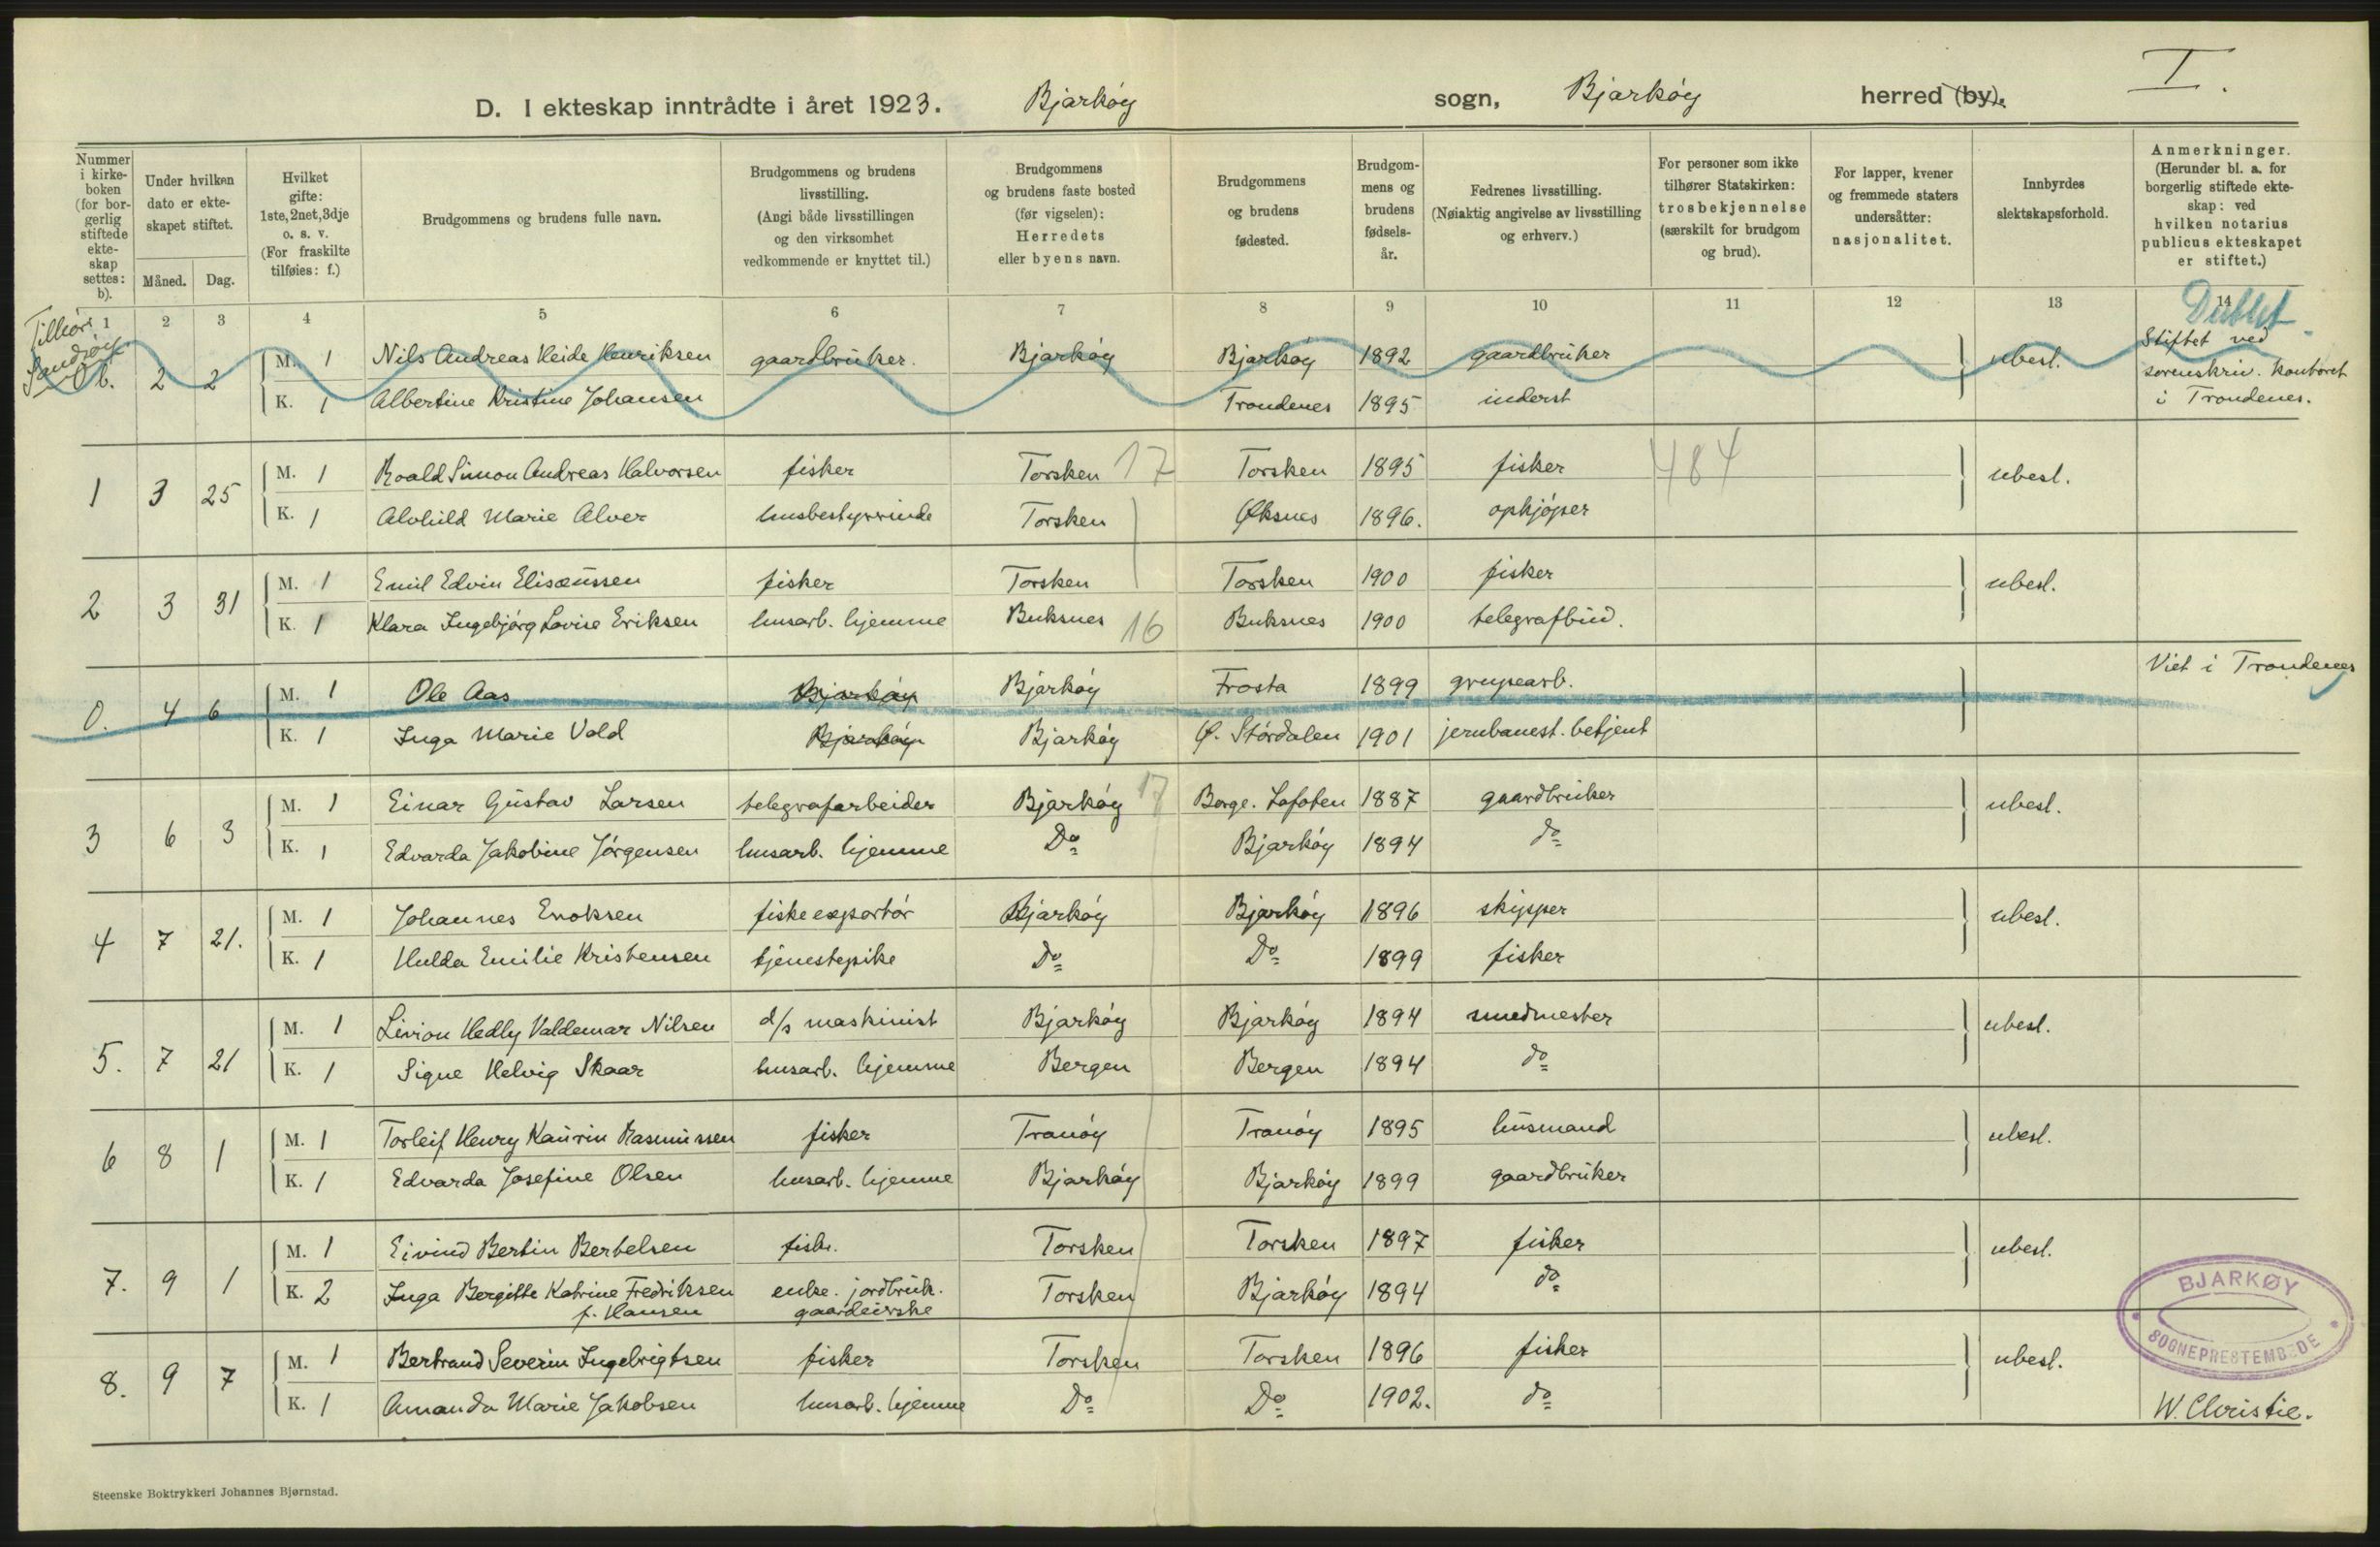 I.
D. I ekteskap inntrådte i året 1923. Bjarkóy sogn, Bjarkóy herred (by).
Nummer i kirkeboken (for borgerlig stiftede ekteskap settes: b).
Under hvilken dato er ekteskapet stiftet.
Måned. Dag.
Hvilket gifte: 1ste, 2net, 3dje o. s. v. (For fraskilte tilføies: f.)
Brudgommens og brudens fulle navn.
Brudgommens og brudens livsstilling. (Angi både livsstillingen og den virksomhet vedkommende er knyttet til.)
Brudgommens og brudens faste bosted (før vigselen): Herredets eller byens navn.
Brudgommens og brudens fødested.
Brudgommens og brudens fødselsår.
Fedrenes livsstilling. (Nøiaktig angivelse av livsstilling og erhverv.)
For personer som ikke tilhører Statskirken: trosbekjennelse (særskilt for brudgom og brud).
For lapper, kvener og fremmede staters undersåtter: nasjonalitet.
Innbyrdes slektskapsforhold.
Anmerkninger. (Herunder bl. a. for borgerlig stiftede ekteskap: ved hvilken notarius publicus ekteskapet er stiftet.)
1 2 3 4 5 6 7 8 9 10 11 12 13 14
Dublet
Tilhør Sandtorg
0b. 2 2 M. 1 Nils Andreas Heide Henriksen gaardbruker. Bjarkóy Bjarkóy 1892 gaardbruker ubesl. Stiftet ved sorenskriv. kontoret i Trondenes.
K. 1 Albertine Kristine Johansen Trondenes 1895 inderst
1 3 25 M. 1 Roald Simon Andreas Halvorsen fisker Torsken 17 Torsken 1895 fisker 484 ubesl.
K. 1 Alvhild Marie Alver husbestyrrinde Torsken Øksnes 1896. opkjóper
2 3 31 M. 1 Emil Edvin Elisæussen fisker Torsken Torsken 1900 fisker ubesl.
K. 1 Klara Ingebjórg Lovise Eriksen husarb. hjemme Buksnes 16 Buksnes 1900 telegrafbud.
0. 4 6 M. 1 Ole Aas Bjarkóy Bjarkóy Frosta 1899 grupearb. Viet i Trondenes
K. 1 Inga Marie Vold Bjarkóy Bjarkóy Ø. Stórdalen 1901 jernbanest. betjent
3 6 3 M. 1 Einar Gustav Larsen telegrafarbeider Bjarkóy 17 Borge. Lofoten 1887 gaardbruker ubesl.
K. 1 Edvarda Jakobine Jórgensen husarb. hjemme Do Bjarkóy 1894 do
4 7 21. M. 1 Johannes Enoksen fiskeexportór Bjarkóy Bjarkóy 1896 skipper ubesl.
K. 1 Hulda Emilie Kristensen tjenestepike Do Do 1899 fisker
5. 7 21 M. 1 Livion Hedly Valdemar Nilsen d/s maskinist Bjarkóy Bjarkóy 1894 smedmester ubesl.
K. 1 Signe Helvig Skaar husarb. hjemme Bergen Bergen 1894 do
6 8 1 M. 1 Torleif Henry Kaurin Rasmussen fisker Tranóy Tranóy 1895 husmand ubesl.
K. 1 Edvarda Josefine Olsen husarb. hjemme Bjarkóy Bjarkóy 1899 gaardbruker
7. 9 1 M. 1 Eivind Bertin Bertelsen fisk. Torsken Torsken 1897 fisker ubesl.
K. 2 Inga Bergitte Katrine Fredriksen enke. jordbruk. Torsken Bjarkóy 1894 do
f. Hansen gaardeierske
8. 9 7 M. 1 Bertrand Severin Ingebrigtsen fisker Torsken Torsken 1896 fisker ubesl.
K. 1 Amanda Marie Jakobsen husarb. hjemme Do Do 1902. do
BJARKØY SOGNEPRESTEMBEDE
W. Christie.
Steenske Boktrykkeri Johannes Bjørnstad.